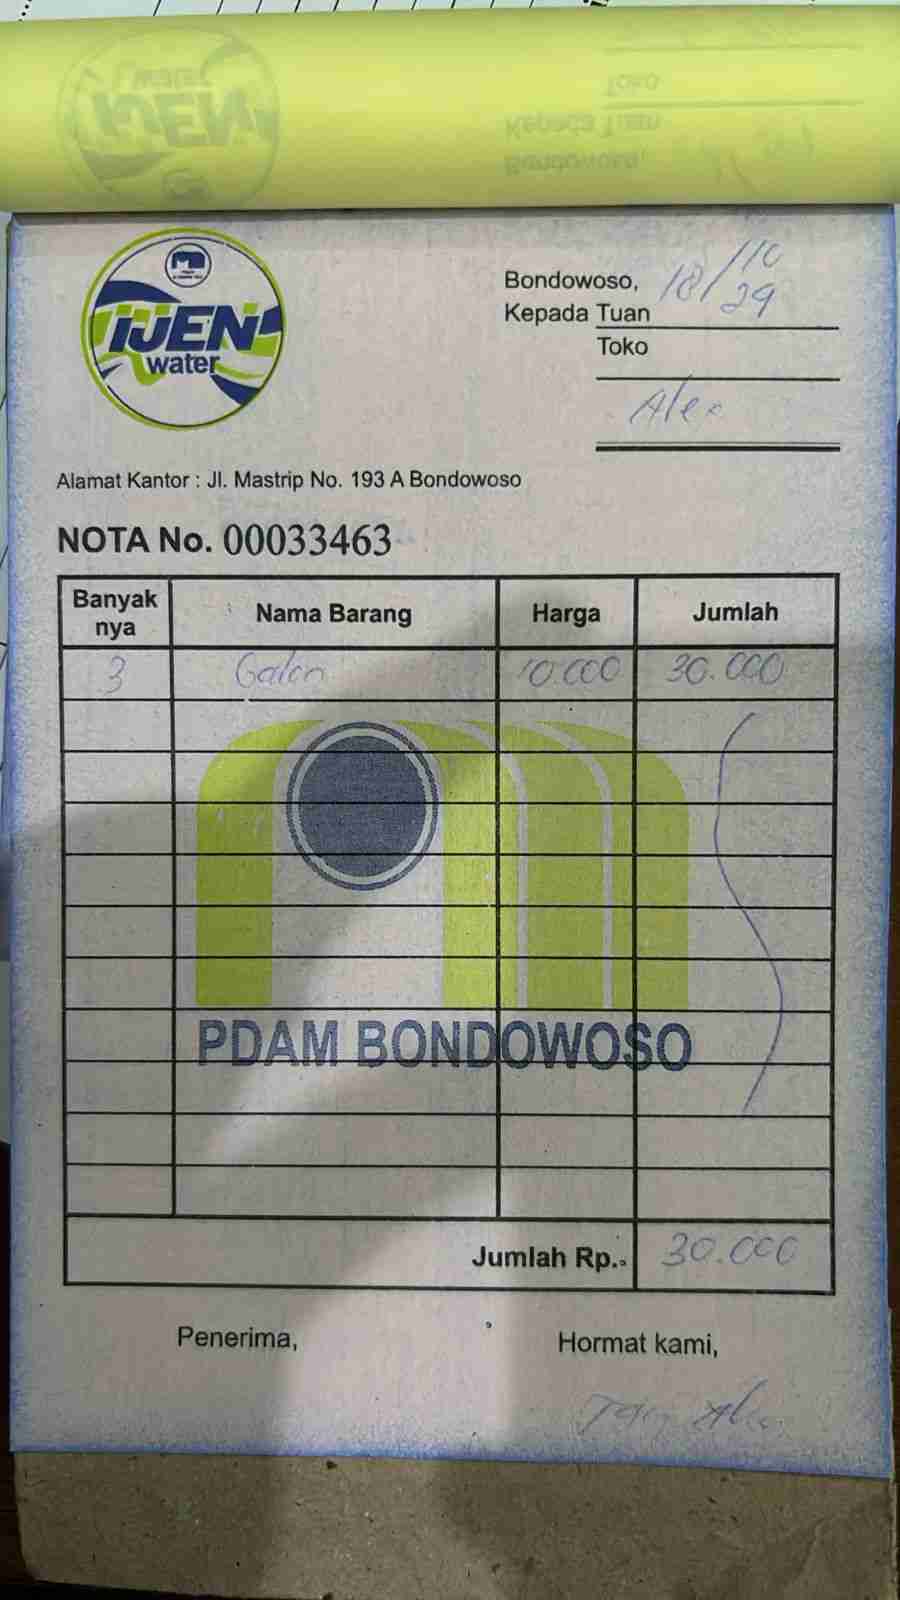 IJEN
water
Bondowoso, 18/10
29
Kepada Tuan
Toko
Alex
Alamat Kantor : Jl. Mastrip No. 193 A Bondowoso
NOTA No. 00033463
Banyak nya Nama Barang Harga Jumlah
3 Galon 10.000 30.000
PDAM BONDOWOSO
Jumlah Rp.. 30.000
Penerima, Hormat kami,